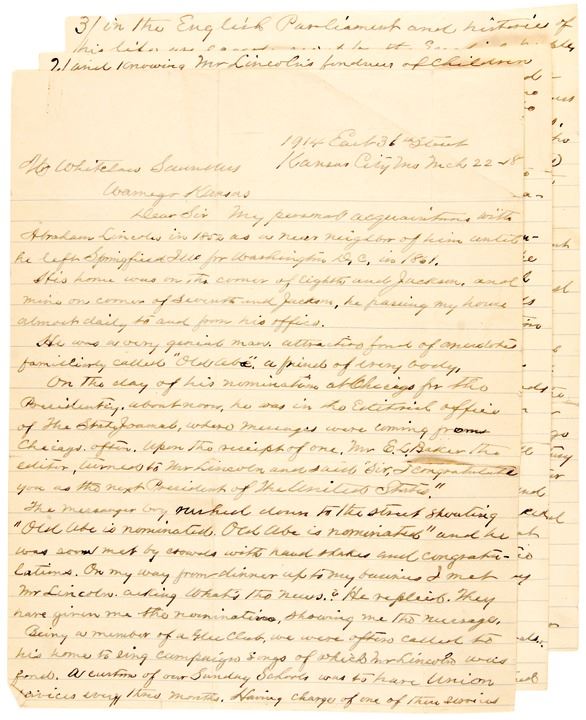 3/ in the English Parliament and histories of
2/ and knowing Mr Lincoln's fondness of children
1914 East 36th Street
Kansas City Mo Mch 22 -18
Whitelaw Saunders
Wamego Kansas
Dear Sir My personal acquaintance with
Abraham Lincoln in 1852 as a near neighbor of him until
he left Springfield Ills for Washington D,C, in 1861.
His home was on the corner of Eighth and Jackson, and
mine on corner of Seventh and Jackson, he passing my house
almost daily to and from his office.
He was a very genial man, attractive fond of anecdotes
familiarly called "Old Abe", a friend of every body,
On the day of his nomination at Chicago for the
Presidentcy, about noon, he was in the Editorial office
of The State Journal, where messages were coming from
Chicago, often. Upon the receipt of one, Mr E L Baker the
editor, turned to Mr Lincoln and said Sir, I congratulate
you as the next President of The United States"
The messenger boy rushed down to the street shouting
"Old Abe is nominated. Old Abe is nominated" and he
was soon met by crowds with hand shakes and congratu-
lations. On my way from dinner up to my business I met
Mr Lincoln. asking What's the news.? He replied. They
have given me the nomination, showing me the message.
Being a member of a Glee Club, we were often called to
his home to sing campaign songs of which Mr Lincoln was
fond. A custom of our Sunday Schools was to have Union
services every three months. Having charge of one of these services